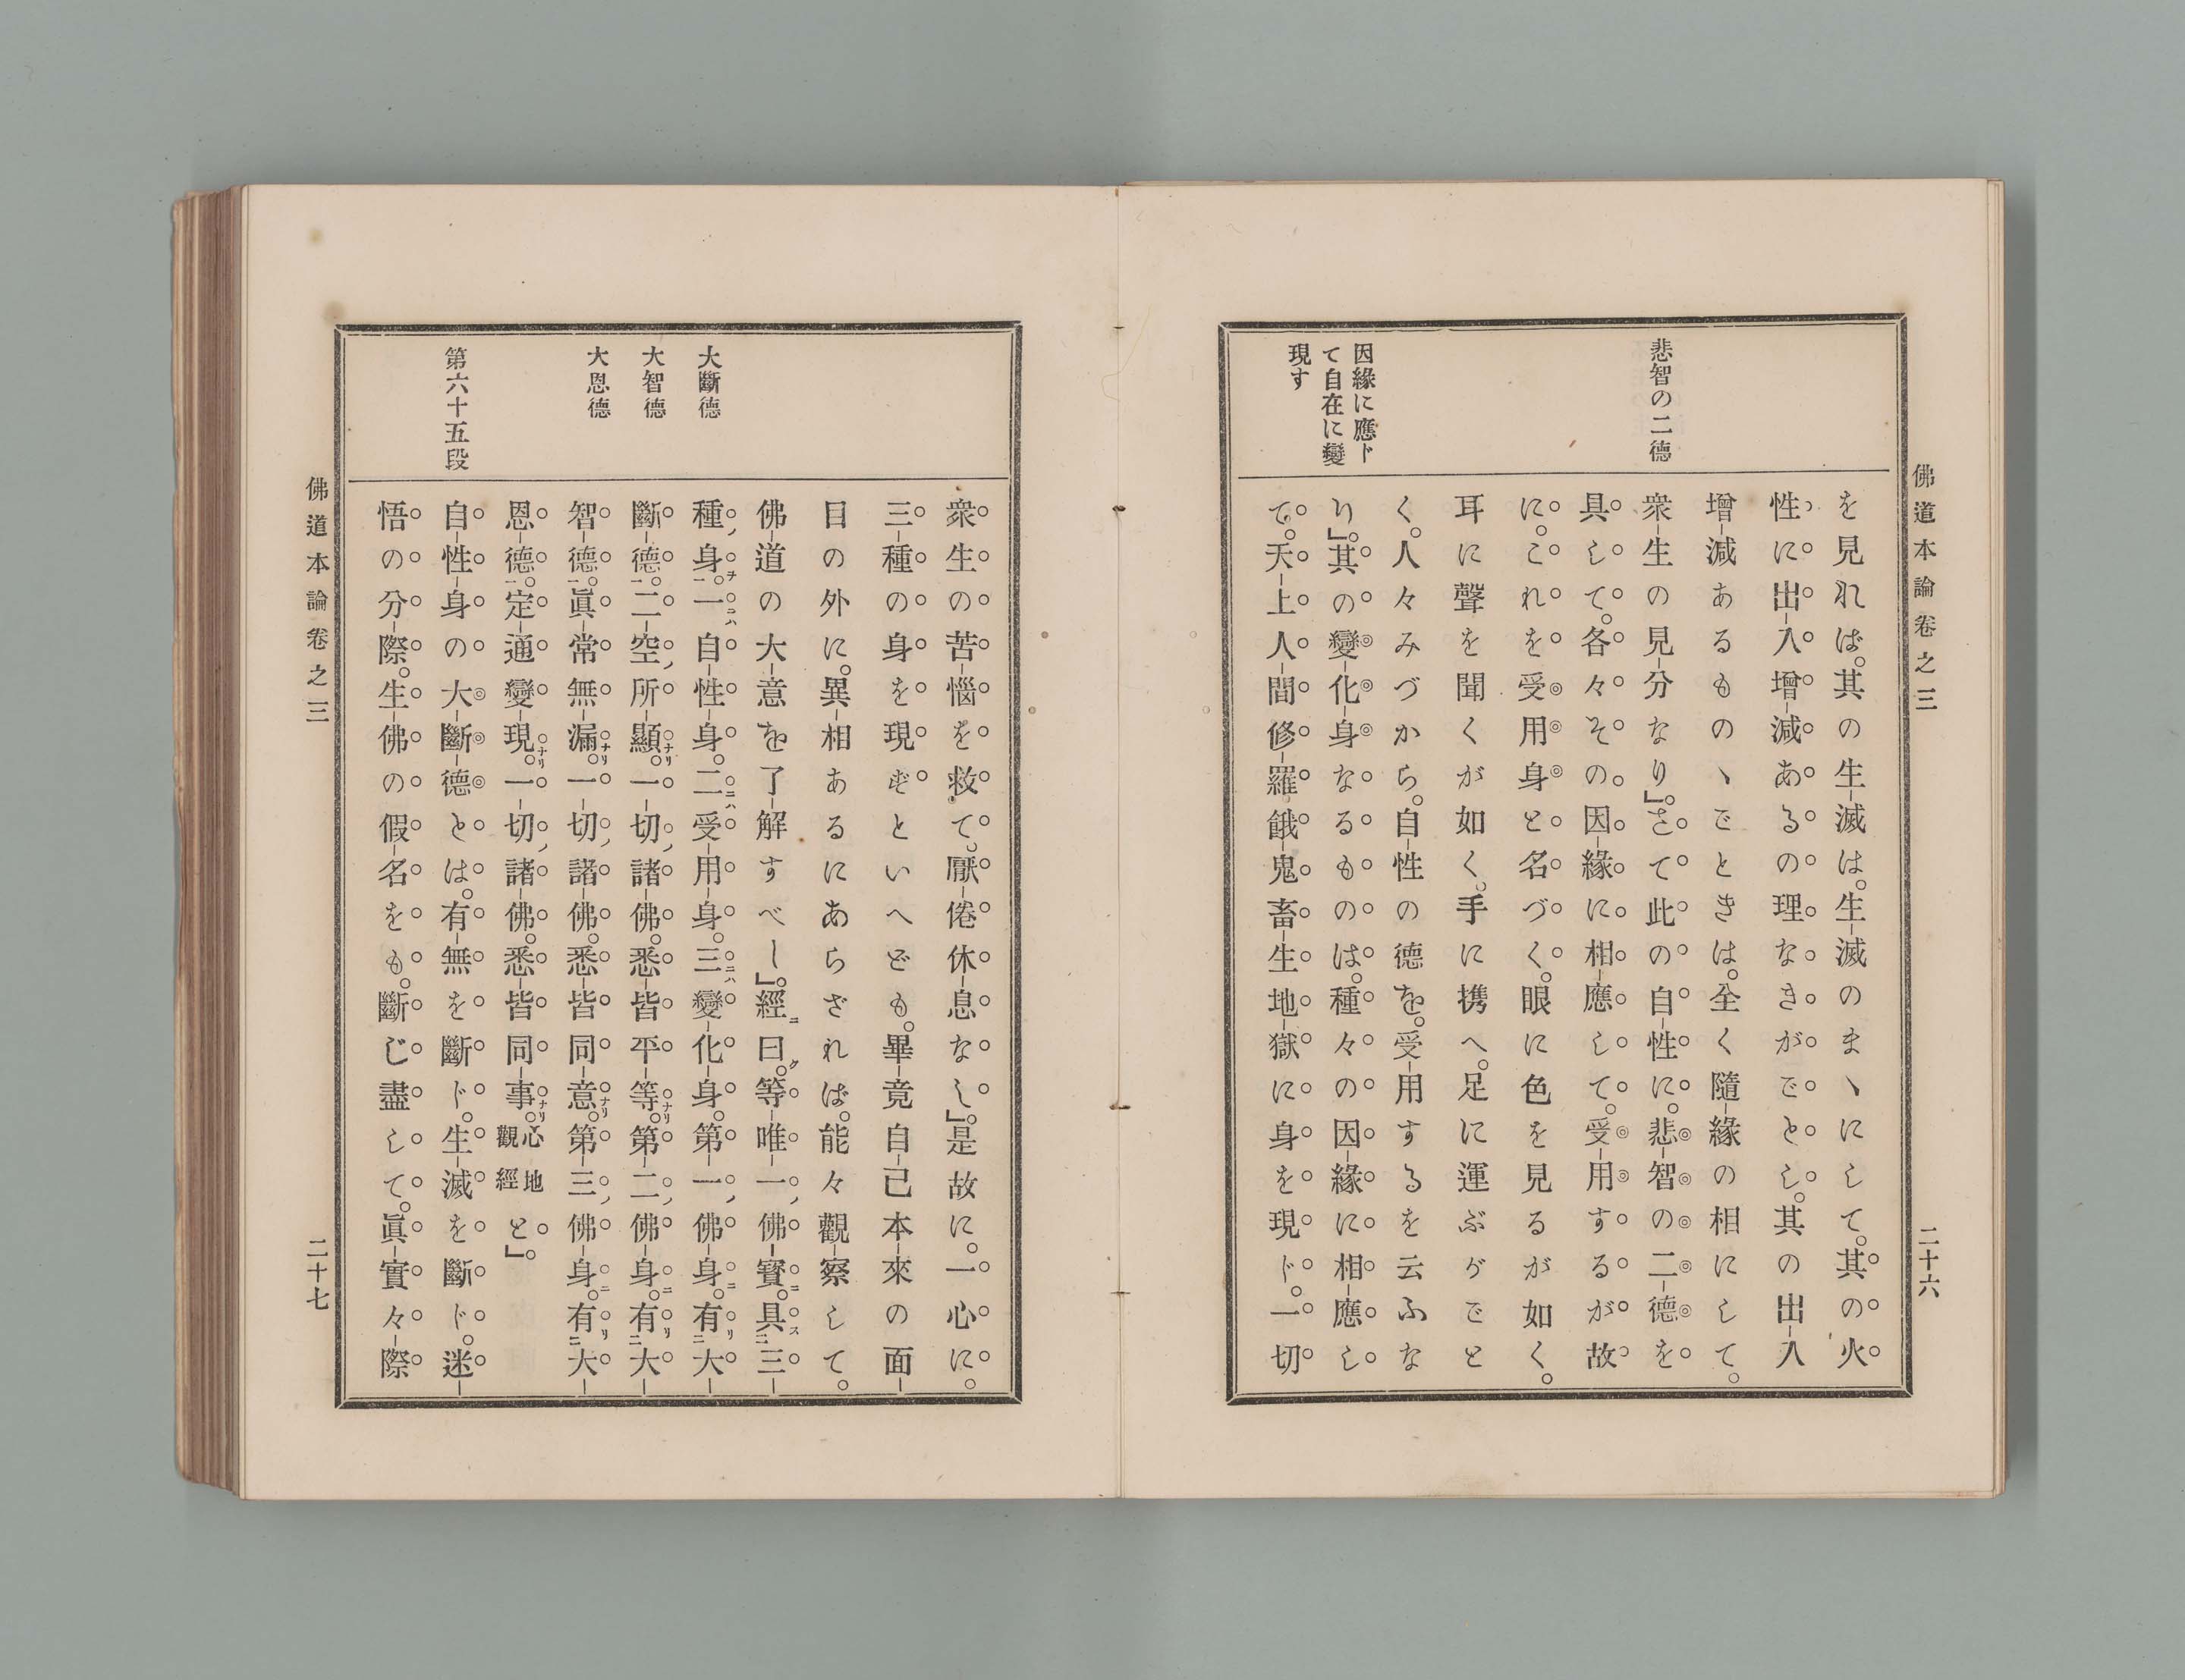 佛道本論卷之三
二十六
悲智の二德
因緣に應ド
て自在に變
現す
を見れば。其の生滅は。生滅のまゝにして。其の火
性に出入增減あるの理なきがごとし。其の出入
增減あるものゝごときは。全く隨緣の相にして。
衆生の見分なり』。さて此の自性に。悲智の二德を
具して。各々その因緣に相應して。受用するが故
に。これを受用身と名づく。眼に色を見るが如く。
耳に聲を聞くが如く。手に携へ。足に運ぶがごと
く。人々みづから。自性の德を。受用するを云ふな
り』。其の變化身なるものは。種々の因緣に相應し
て。天上人間修羅餓鬼畜生地獄に身を現ド。一切
衆生の苦惱を救て。厭倦休息なし』。是故に。一心に。
三種の身を現ずといへども。畢竟自己本來の面
目の外に。異相あるにあらざれば。能々觀察して。
佛道の大意を了解すべし』。經ニ曰ク。等唯一、佛寶ニ。具ス三
種、身ヲ。一ニハ自性身。二ニハ受用身。三ニハ變化身。第一、佛身ニ。有リ大
斷德。二空、所顯ナリ。一切、諸佛。悉皆平等ナリ。第二、佛身ニ。有リ大
智德。眞常無漏ナリ。一切、諸佛。悉皆同意ナリ。第三、佛身ニ。有リ大
恩德。定通變現ナリ。一切、諸佛。悉皆同事ナリ。心地觀經と』。
自性身の大斷德とは。有無を斷ド。生滅を斷ド。迷
悟の分際。生佛の假名をも。斷じ盡して。眞實々際
大斷德
大智德
大恩德
第六十五段
佛道本論卷之三
二十七